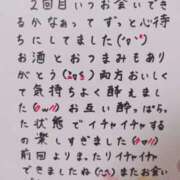 2回目いつお会いでき
るかなぁってずっと心待
ちにしてました(^o^)
お酒とおつまみもあり
がとう 両方おいしく
て気持ちよく酔えまし
た(^w^) お互い酔っぱらっ
た状態でイチャイチャする
の楽しすぎました(^w^)
前回よりまったりイチャイチャ
できましたね(^^) またお会い